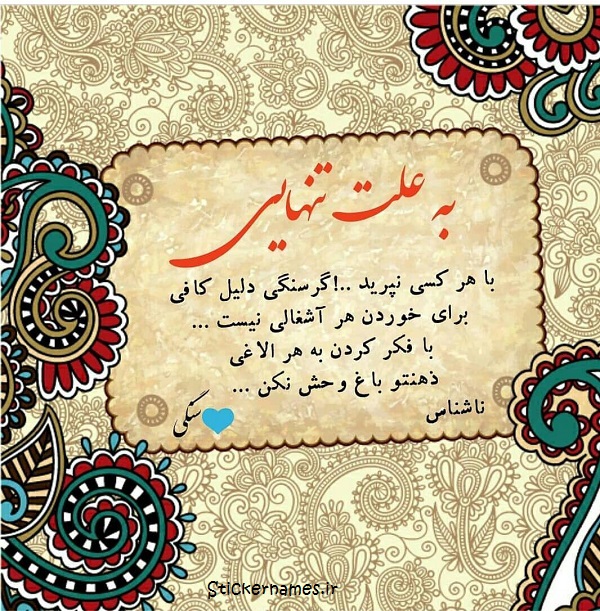 به علت تنهایی
با هر کسی نپرید ..!گرسنگی دلیل کافی
برای خوردن هر آشغالی نیست ...
با فکر کردن به هر الاغی
ذهنتو باغ وحش نکن ...
ناشناس
سنگی
Stickernames.ir